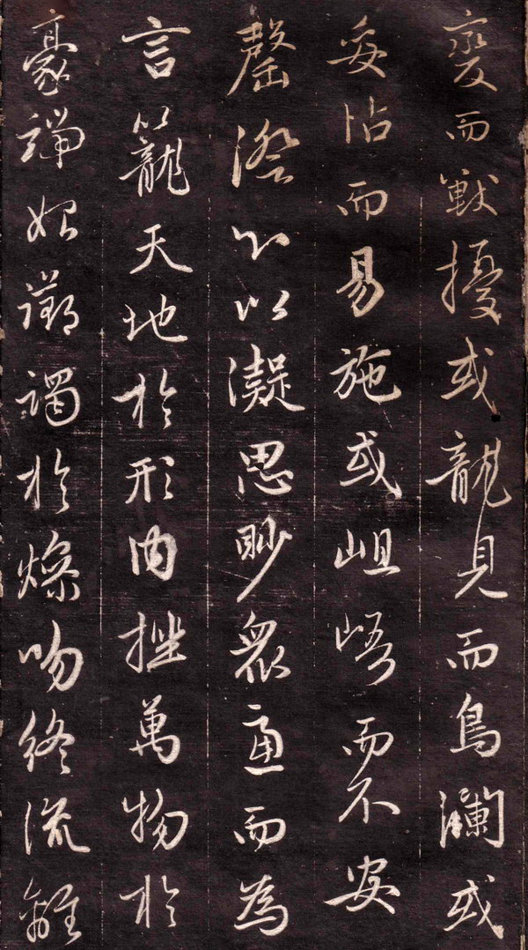 變而獸擾或龍見而鳥瀾或
妥怗而易施或岨峿而不安
罄澄心以凝思眇衆慮而為
言籠天地於形內挫萬物於
豪端始躑躅於燥吻終流離